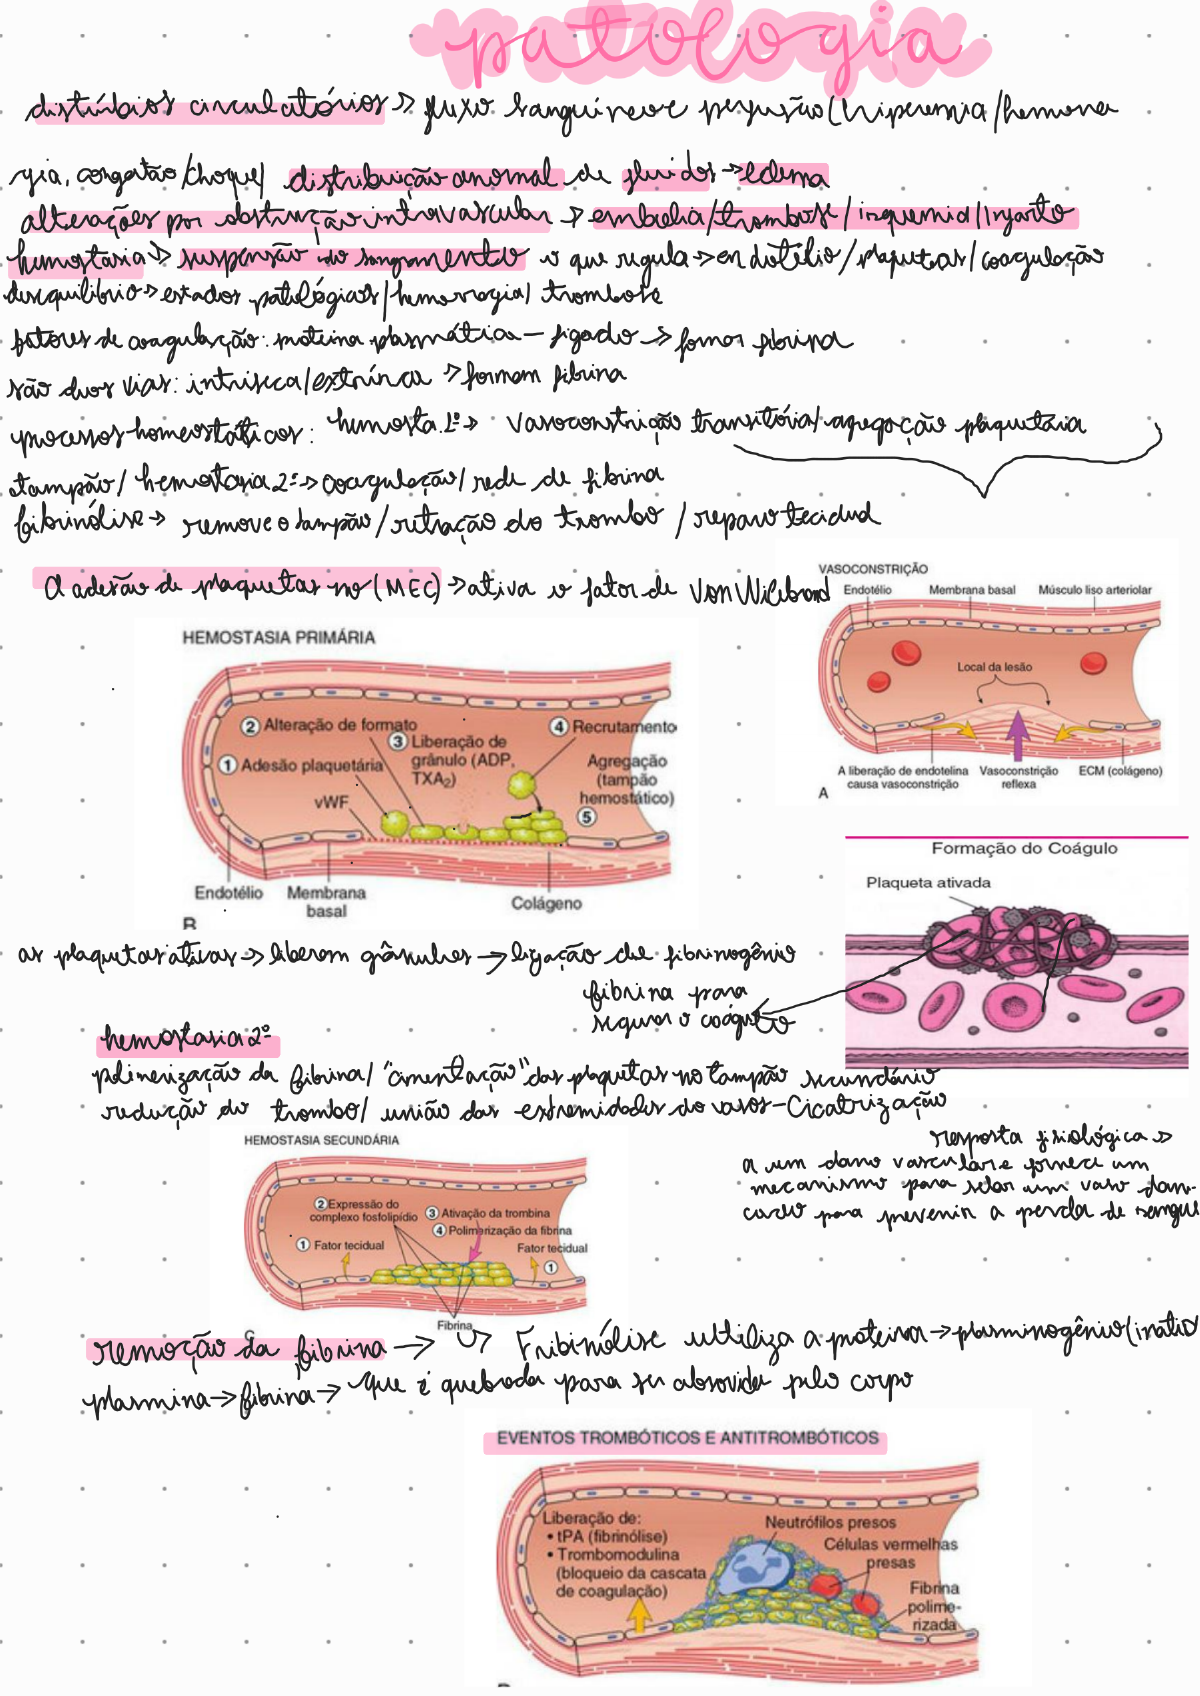 patologia
distúrbios circulatórios → fluxo sanguíneo e perfusão (hiperemia/hemorra
gia, congestão/choque/ distribuição anormal de fluidos → edema
alterações por obstrução intravascular → embolia/trombose/isquemia/infarto
hemostasia → suspensão do sangramento o que regula → endotélio/plaquetas/coagulação
desequilíbrio → estados patológicos/hemorragia/trombose
fatores de coagulação: proteína plasmática - fígado → formar fibrina
são duas vias: intríseca/extrínca → formam fibrina
processos homeostáticos: hemosta.1º → vasoconstrição transitória/agregação plaquetária
tampão/ hemostasia 2º → coagulação/ rede de fibrina
fibrinólise → remove o tampão/retração do trombo/reparo tecidual
A adesão de plaquetas no (MEC) → ativa o fator de Von Willebrand
VASOCONSTRIÇÃO
Endotélio Membrana basal Músculo liso arteriolar
Local da lesão
A liberação de endotelina causa vasoconstrição
Vasoconstrição reflexa
ECM (colágeno)
A
HEMOSTASIA PRIMÁRIA
2 Alteração de formato
3 Liberação de grânulo (ADP, TXA2)
4 Recrutamento
1 Adesão plaquetária
Agregação (tampão hemostático)
5
vWF
Endotélio
Membrana basal
Colágeno
B
Formação do Coágulo
Plaqueta ativada
as plaquetas ativas → liberam grânulos → ligação de fibrinogênio
fibrina para
segurar o coágulo
hemostasia 2º
polimerização da fibrina/ "cimentação" das plaquetas no tampão secundário
redução do trombo/ união das extremidades do vasos - Cicatrização
resposta fisiológica →
a um dano vascular e fornece um
mecanismo para selar um vaso dani-
cado para prevenir a perda de sangue
HEMOSTASIA SECUNDÁRIA
2 Expressão do complexo fosfolipídio
3 Ativação da trombina
4 Polimerização da fibrina
1 Fator tecidual
Fator tecidual
1
Fibrina
C
remoção da fibrina → Fribinólise ultiliza a proteína → plasminogênio (inativo
plasmina → fibrina → que é quebrada para ser absovida pelo corpo
EVENTOS TROMBÓTICOS E ANTITROMBÓTICOS
Liberação de:
• tPA (fibrinólise)
• Trombomodulina
(bloqueio da cascata
de coagulação)
Neutrófilos presos
Células vermelhas
presas
Fibrina
polime-
rizada